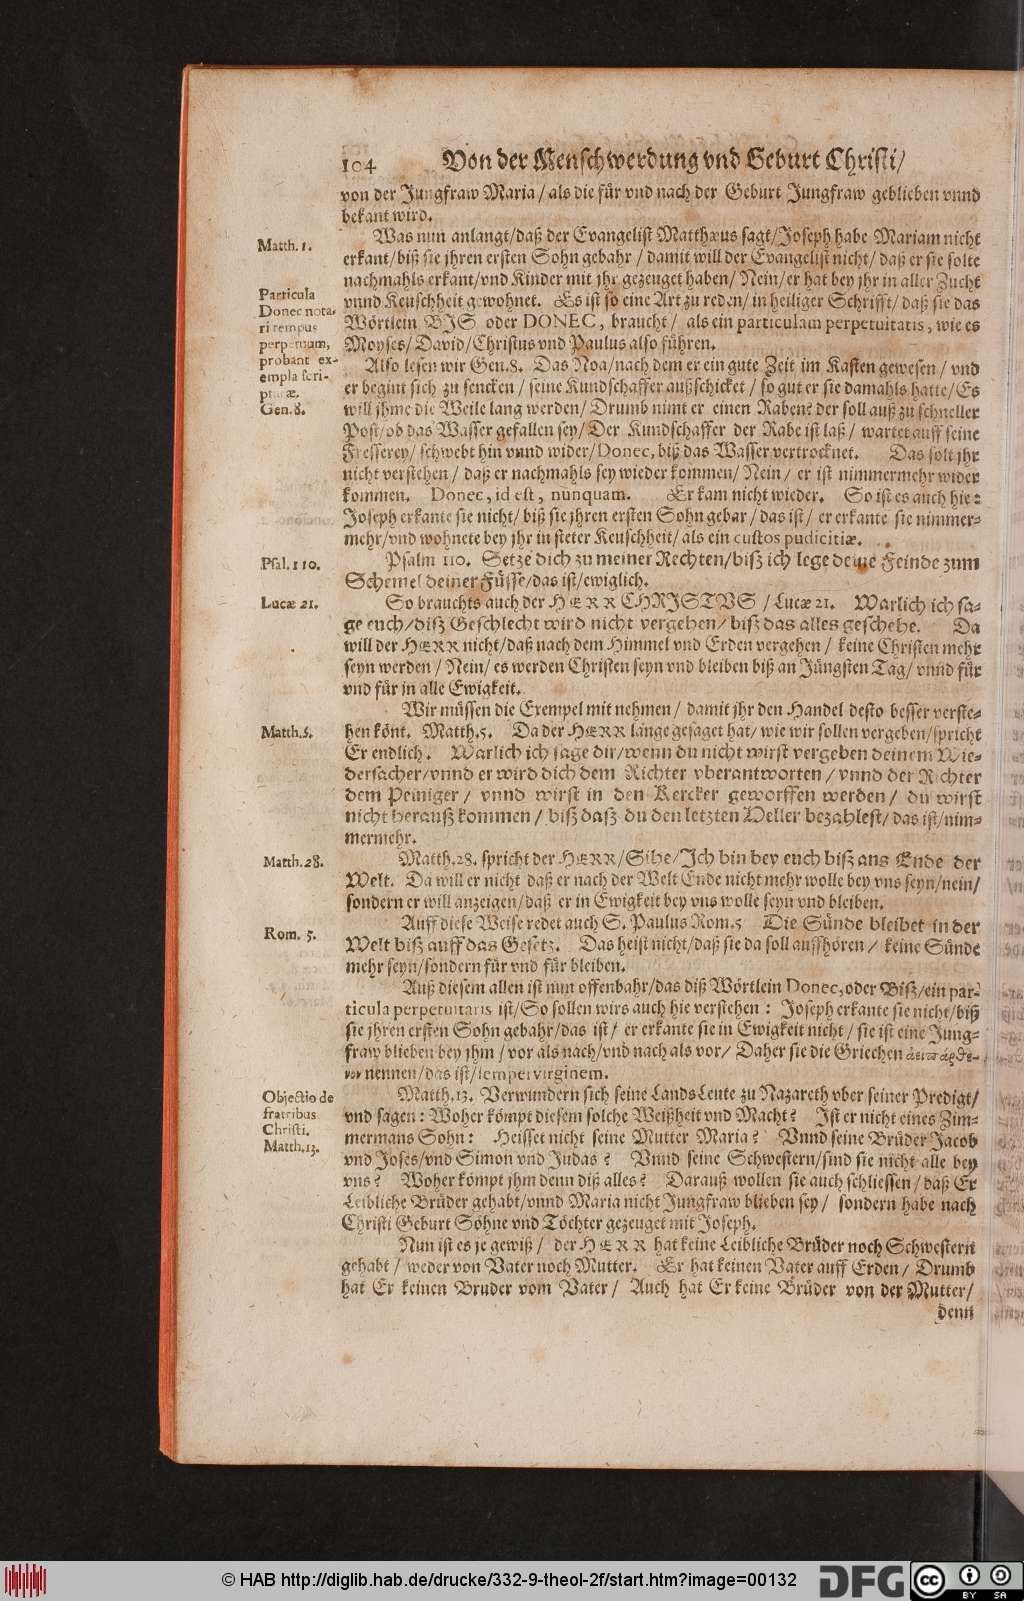 104 Von der Menschwerdung vnd Geburt Christi/
von der Jungfraw Maria/ als die für vnd nach der Geburt Jungfraw geblieben vnnd
bekant wird.
Matth. 1.
Was nun anlangt/daß der Evangelist Matthæus sagt/Joseph habe Mariam nicht
erkant/biß sie jhren ersten Sohn gebahr/ damit will der Evangelist nicht/ daß er sie solte
nachmahls erkant/vnd Kinder mit jhr gezeuget haben/ Nein/er hat bey jhr in aller Zucht
Particula
Donec nota-
ri tempus
perpetuum,
probant ex-
empla scri-
pturæ.
vnnd Keuschheit gewohnet. Es ist so eine Art zu reden/ in heiliger Schrifft/ daß sie das
Wörtlein BIS oder DONEC, braucht/ als ein particulam perpetuitatis, wie es
Moyses/ David/Christus vnd Paulus also führen.
Gen. 8.
Also lesen wir Gen. 8. Das Noa/nach dem er ein gute Zeit im Kasten gewesen/ vnd
er begint sich zu sencken/ seine Kundschaffer außschicket/ so gut er sie damahls hatte/Es
will jhme die Weile lang werden/ Drumb nimt er einen Raben? der soll auß zu schneller
Post/ob das Wasser gefallen sey/ Der Kundschaffer der Rabe ist laß/ wartet auff seine
Fresserey/ schwebt hin vnnd wider/Donec, biß das Wasser vertrocknet. Das solt jhr
nicht verstehen/ daß er nachmahls sey wieder kommen/ Nein/ er ist nimmermehr wider
kommen. Donec, id est, nunquam. Er kam nicht wieder. So ist es auch hie:
Joseph erkante sie nicht/ biß sie jhren ersten Sohn gebar/ das ist/ er erkante sie nimmer-
mehr/vnd wohnete bey jhr in steter Keuschheit/ als ein custos pudicitiæ.
Psal. 110.
Psalm 110. Setze dich zu meiner Rechten/biß ich lege deine Feinde zum
Schemel deiner Füsse/das ist/ewiglich.
Lucæ 21.
So brauchts auch der HERR CHRISTVS / Lucæ 21. Warlich ich sa-
ge euch/diß Geschlecht wird nicht vergehen/biß das alles geschehe. Da
will der HERR nicht/daß nach dem Himmel vnd Erden vergehen/ keine Christen mehr
seyn werden/ Nein/ es werden Christen seyn vnd bleiben biß an Jüngsten Tag/ vnnd für
vnd für in alle Ewigkeit.
Wir müssen die Exempel mit nehmen/ damit jhr den Handel desto besser verste-
Matth. 5.
hen könt. Matth. 5. Da der HERR lange gesaget hat/ wie wir sollen vergeben/spricht
Er endlich. Warlich ich sage dir/wenn du nicht wirst vergeben deinem Wie-
dersacher/vnnd er wird dich dem Richter vberantworten/ vnnd der Richter
dem Peiniger/ vnnd wirst in den Kercker geworffen werden/ du wirst
nicht herauß kommen/ biß daß du den letzten Heller bezahlest/das ist/nim-
mermehr.
Matth. 28.
Matth. 28. spricht der HERR/Sihe/Ich bin bey euch biß ans Ende der
Welt. Da will er nicht daß er nach der Welt Ende nicht mehr wolle bey vns seyn/nein/
sondern er will anzeigen/daß er in Ewigkeit bey vns wolle seyn vnd bleiben.
Rom. 5.
Auff diese Weise redet auch S. Paulus Rom. 5 Die Sünde bleibet in der
Welt biß auff das Gesetz. Das heist nicht/daß sie da soll auffhören/ keine Sünde
mehr seyn/sondern für vnd für bleiben.
Auß diesem allen ist nun offenbahr/das diß Wörtlein Donec, oder Biß/ein par-
ticula perpetuitatis ist/So sollen wirs auch hie verstehen: Joseph erkante sie nicht/biß
sie jhren ersten Sohn gebahr/das ist/ er erkante sie in Ewigkeit nicht/ sie ist eine Jung-
fraw blieben bey jhm/ vor als nach/vnd nach als vor/ Daher sie die Griechen ἀειπάρθε-
νον nennen/das ist/semper virginem.
Objectio de
fratribus
Christi.
Matth. 13.
Matth. 13. Verwundern sich seine Lands Leute zu Nazareth vber seiner Predigt/
vnd sagen: Woher kömpt diesem solche Weißheit vnd Macht? Ist er nicht eines Zim-
mermans Sohn: Heisset nicht seine Mutter Maria? Vnnd seine Brüder Jacob
vnd Joses/vnd Simon vnd Judas? Vnnd seine Schwestern/sind sie nicht alle bey
vns? Woher kömpt jhm denn diß alles? Darauß wollen sie auch schliessen/ daß Er
Leibliche Brüder gehabt/vnnd Maria nicht Jungfraw blieben sey/ sondern habe nach
Christi Geburt Söhne vnd Töchter gezeuget mit Joseph.
Nun ist es je gewiß/ der HERR hat keine Leibliche Brüder noch Schwestern
gehabt/ weder von Vater noch Mutter. Er hat keinen Vater auff Erden/ Drumb
hat Er keinen Bruder vom Vater/ Auch hat Er keine Brüder von der Mutter/
denn
© HAB http://diglib.hab.de/drucke/332-9-theol-2f/start.htm?image=00132
DFG
cc BY SA